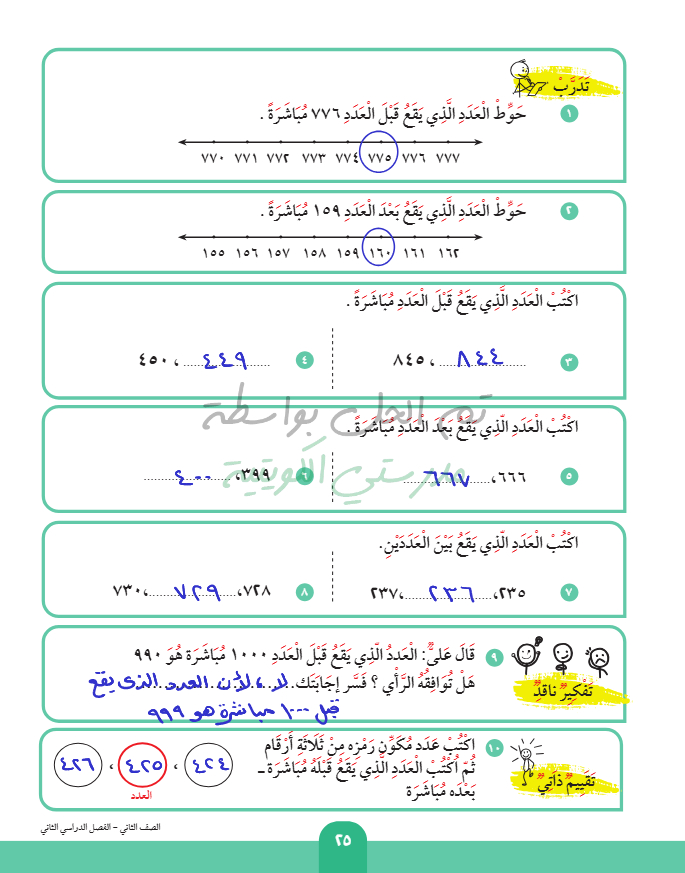 تَدَرَّبْ
١ حَوِّطْ الْعَدَدِ الَّذِي يَقَعُ قَبْلَ الْعَدَدِ ٧٧٦ مُبَاشَرَةً .
٧٧٠ ٧٧١ ٧٧٢ ٧٧٣ ٧٧٤ ٧٧٥ ٧٧٦ ٧٧٧
٢ حَوِّطْ الْعَدَدِ الَّذِي يَقَعُ بَعْدَ الْعَدَدِ ١٥٩ مُبَاشَرَةً .
١٥٥ ١٥٦ ١٥٧ ١٥٨ ١٥٩ ١٦٠ ١٦١ ١٦٢
اكْتُبْ الْعَدَدِ الَّذِي يَقَعُ قَبْلَ الْعَدَدِ مُبَاشَرَةً .
٣ ٨٤٤ ، ٨٤٥
٤ ٤٤٩ ، ٤٥٠
تم الحل بواسطة
اكْتُبْ الْعَدَدِ الَّذِي يَقَعُ بَعْدَ الْعَدَدِ مُبَاشَرَةً .
مدرستي الكويتية
٥ ٦٦٦، ٦٦٧
٦ ٣٩٩، ٤٠٠
اكْتُبْ الْعَدَدِ الَّذِي يَقَعُ بَيْنَ الْعَدَدَيْنِ.
٧ ٢٣٥، ٢٣٦ ،٢٣٧
٨ ٧٢٨، ٧٢٩ ،٧٣٠
تَفْكِيرٌ نَاقِدٌ
٩ قَالَ عَلىٌّ: الْعَدَدُ الَّذِي يَقَعُ قَبْلَ الْعَدَدِ ١٠٠٠ مُبَاشَرَة هُوَ ٩٩٠
هَلْ تُوَافِقُهُ الرَّأْي ؟ فَسَّر إجَابَتَك. لا ، لأن العدد الذى يقع
قبل ١٠٠٠ مباشرة هو ٩٩٩
تَقْيِيمٌ ذَاتِيٌّ
١٠ اكْتُبْ عَدَد مُكَوَّن رَمْزِه مِنْ ثَلَاثَةِ أَرْقَام
ثُمّ اكْتُبْ الْعَدَدِ الَّذِي يَقَعُ قَبْلَهُ مُبَاشَرَة ــ
بَعْدَه مُبَاشَرَة
٤٢٤ ، ٤٢٥ ، ٤٢٦
العدد
الصف الثاني – الفصل الدراسي الثاني
٢٥